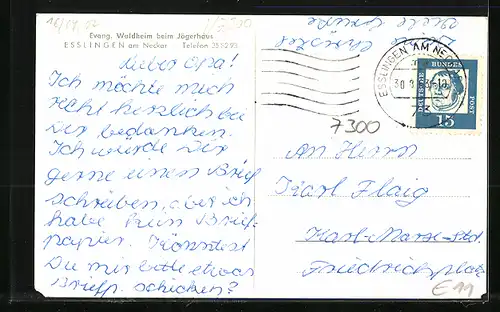 Evang. Waldheim beim Jägerhaus
ESSLINGEN am Neckar Telefon
Lieber Opa!
Ich möchte mich
recht herzlich bei
Dir bedanken.
Ich würde Dir
gerne einen Brief
schreiben, aber ich
habe kein Brief-
papier. Könntest
Du mir bitte etwas
Briefp. schicken?
Viele Grüße
ESSLINGEN AM NECKAR
DEUTSCHE BUNDESPOST
15
7300
An Herrn
Karl Flaig
Karl-Marx-Std.
Friedrichplatz
E11